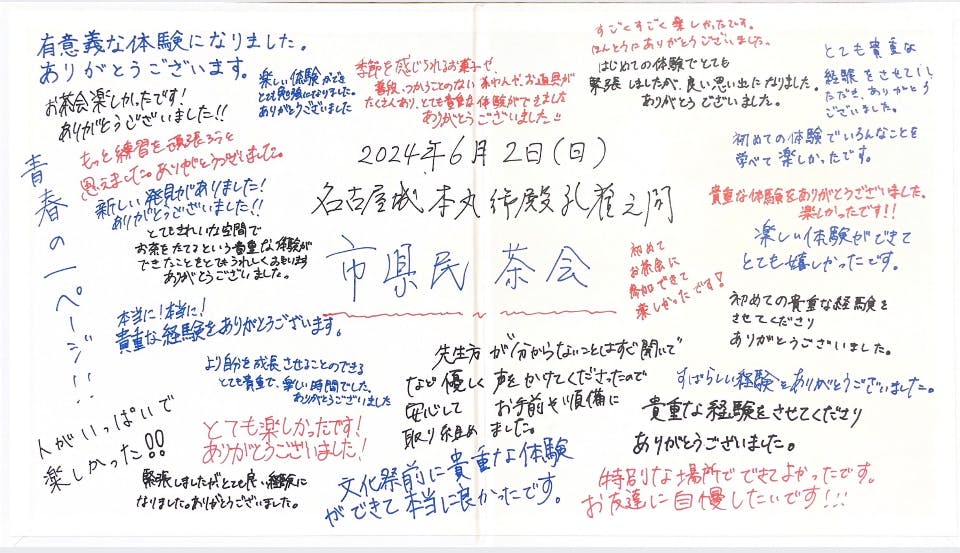 有意義な体験になりました。
ありがとうございます。
お茶会楽しかったです！
ありがとうございました!!
楽しい体験ができ
とても勉強になりました。
ありがとうございました
季節を感じられるお菓子や、
普段、つかうことのない茶わんや、お道具が
たくさんあり、とても貴重な体験ができました
ありがとうございました!!
すごくすごく楽しかったです。
ほんとうにありがとうございました。
はじめての体験でとても
緊張しましたが、良い思い出になりました。
ありがとうございました。
とても貴重な
経験をさせてい
ただき、ありがとう
ございました。
もっと練習を頑張ろうと
思えました。ありがとうございました。
青春の一ページ!!
新しい発見がありました！
ありがとうございました!!
とてもきれいな空間で
お茶をたてるという貴重な体験が
できたことをとてもうれしくおもいます
ありがとうございました。
2024年6月2日(日)
名古屋城本丸御殿孔雀之間
市県民茶会
初めての体験でいろんなことを
学べて楽しかったです。
貴重な体験をありがとうございました。
楽しかったです!!
楽しい体験ができて
とても嬉しかったです。
初めて
お茶会に
参加できて
楽しかったです！
本当に！本当に！
貴重な経験をありがとうございます。
初めての貴重な経験を
させてくださり
ありがとうございました。
より自分を成長させることのできる
とても貴重で、楽しい時間でした。
ありがとうございました
先生方が分からないことはすぐ聞いて
など優しく声をかけてくださったので
安心してお手前や準備に
取り組めました。
すばらしい経験をありがとうございました。
貴重な経験をさせてくださり
ありがとうございました。
人がいっぱいで
楽しかった!!
とても楽しかったです！
ありがとうございました！
緊張しましたがとても良い経験に
なりました。ありがとうございました。
文化祭前に貴重な体験
ができて本当に良かったです。
特別な場所でできてよかったです。
お友達に自慢したいです!!!